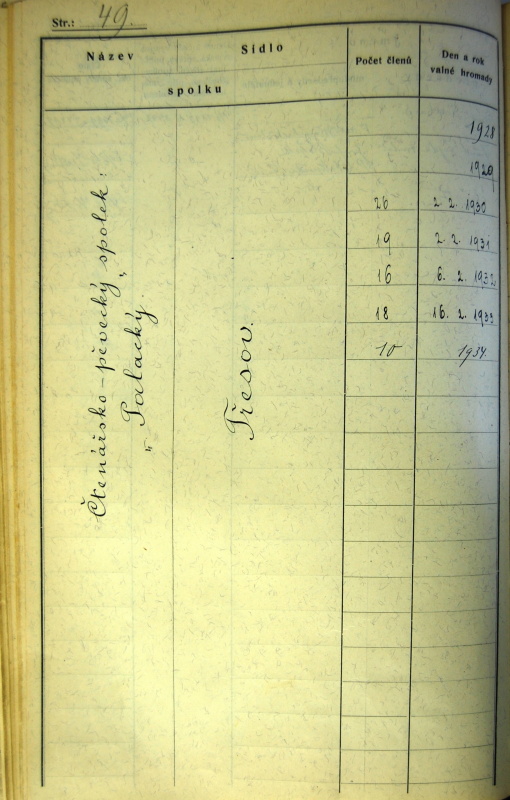 Str.: 49.
Název Sídlo
spolku
Počet členů
Den a rok
valné hromady
Čtenářsko-pěvecký spolek:
„Palacký”
Třesov.
1928
1929
26 2. 2. 1930
19 2. 2. 1931
16 6. 2. 1932
18 16. 2. 1933
10 1934.